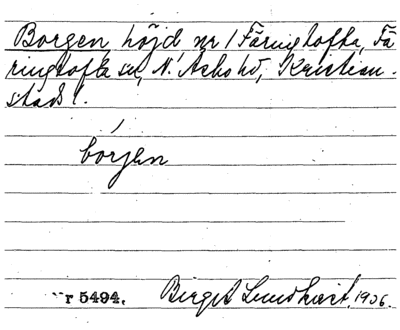 Borgen, höjd, nr 1 Färingtofta, Fä
ringtofta sn, N. Åsbo hd, Kristian-
stads l.
bórjen
r 5494. Birgit Lundkvist, 1936.